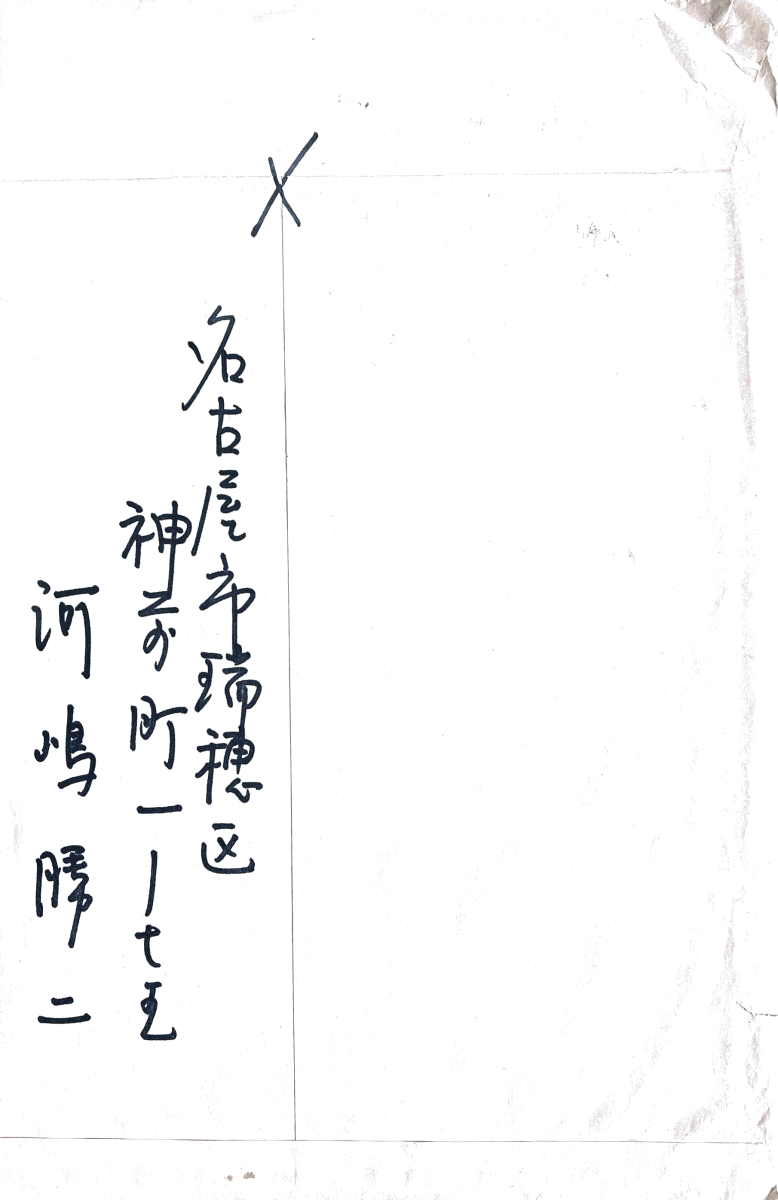 名古屋市瑞穂区
神前町一ー七五
河嶋勝二